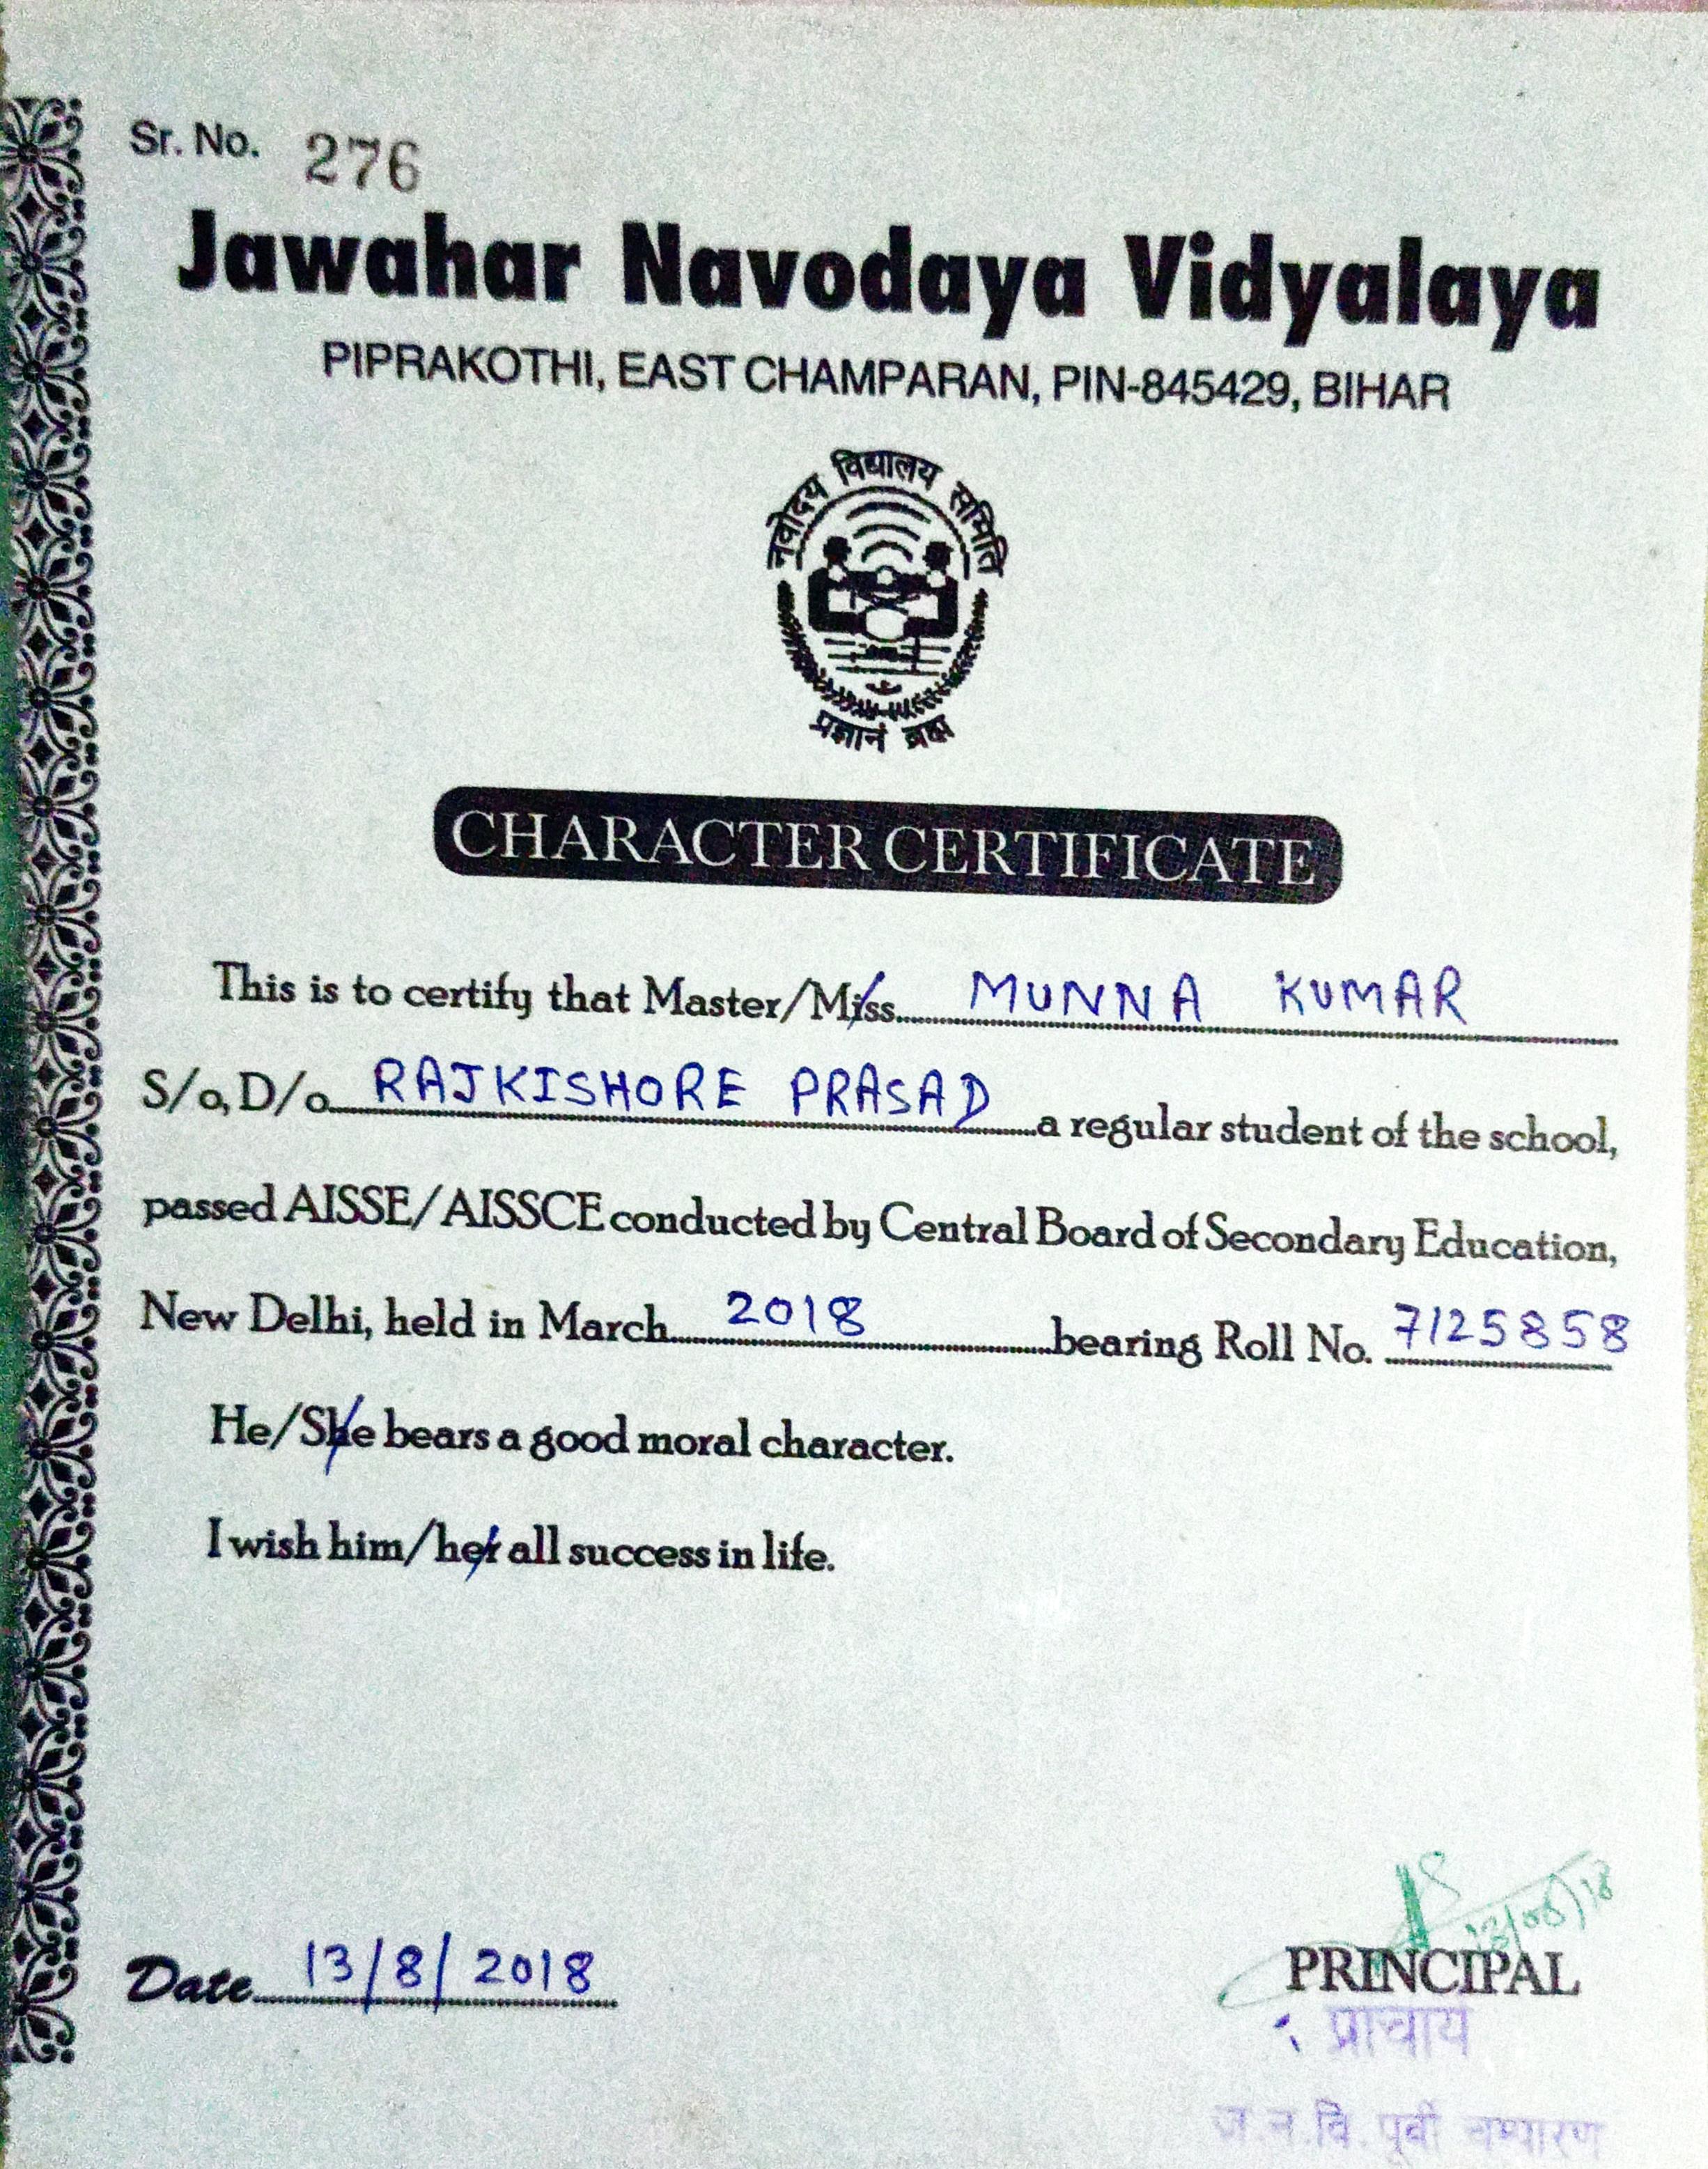 Sr. No. 276
Jawahar Navodaya Vidyalaya
PIPRAKOTHI, EAST CHAMPARAN, PIN-845429, BIHAR
नवोदय विद्यालय समिति
प्रज्ञानं ब्रह्म
CHARACTER CERTIFICATE
This is to certify that Master/Miss MUNNA KUMAR
S/o, D/o RAJKISHORE PRASAD a regular student of the school,
passed AISSE/AISSCE conducted by Central Board of Secondary Education,
New Delhi, held in March 2018 bearing Roll No. 7125858
He/She bears a good moral character.
I wish him/her all success in life.
13/08/18
Date 13/8/2018 PRINCIPAL
प्राचार्य
ज.न.वि. पूर्वी चम्पारण